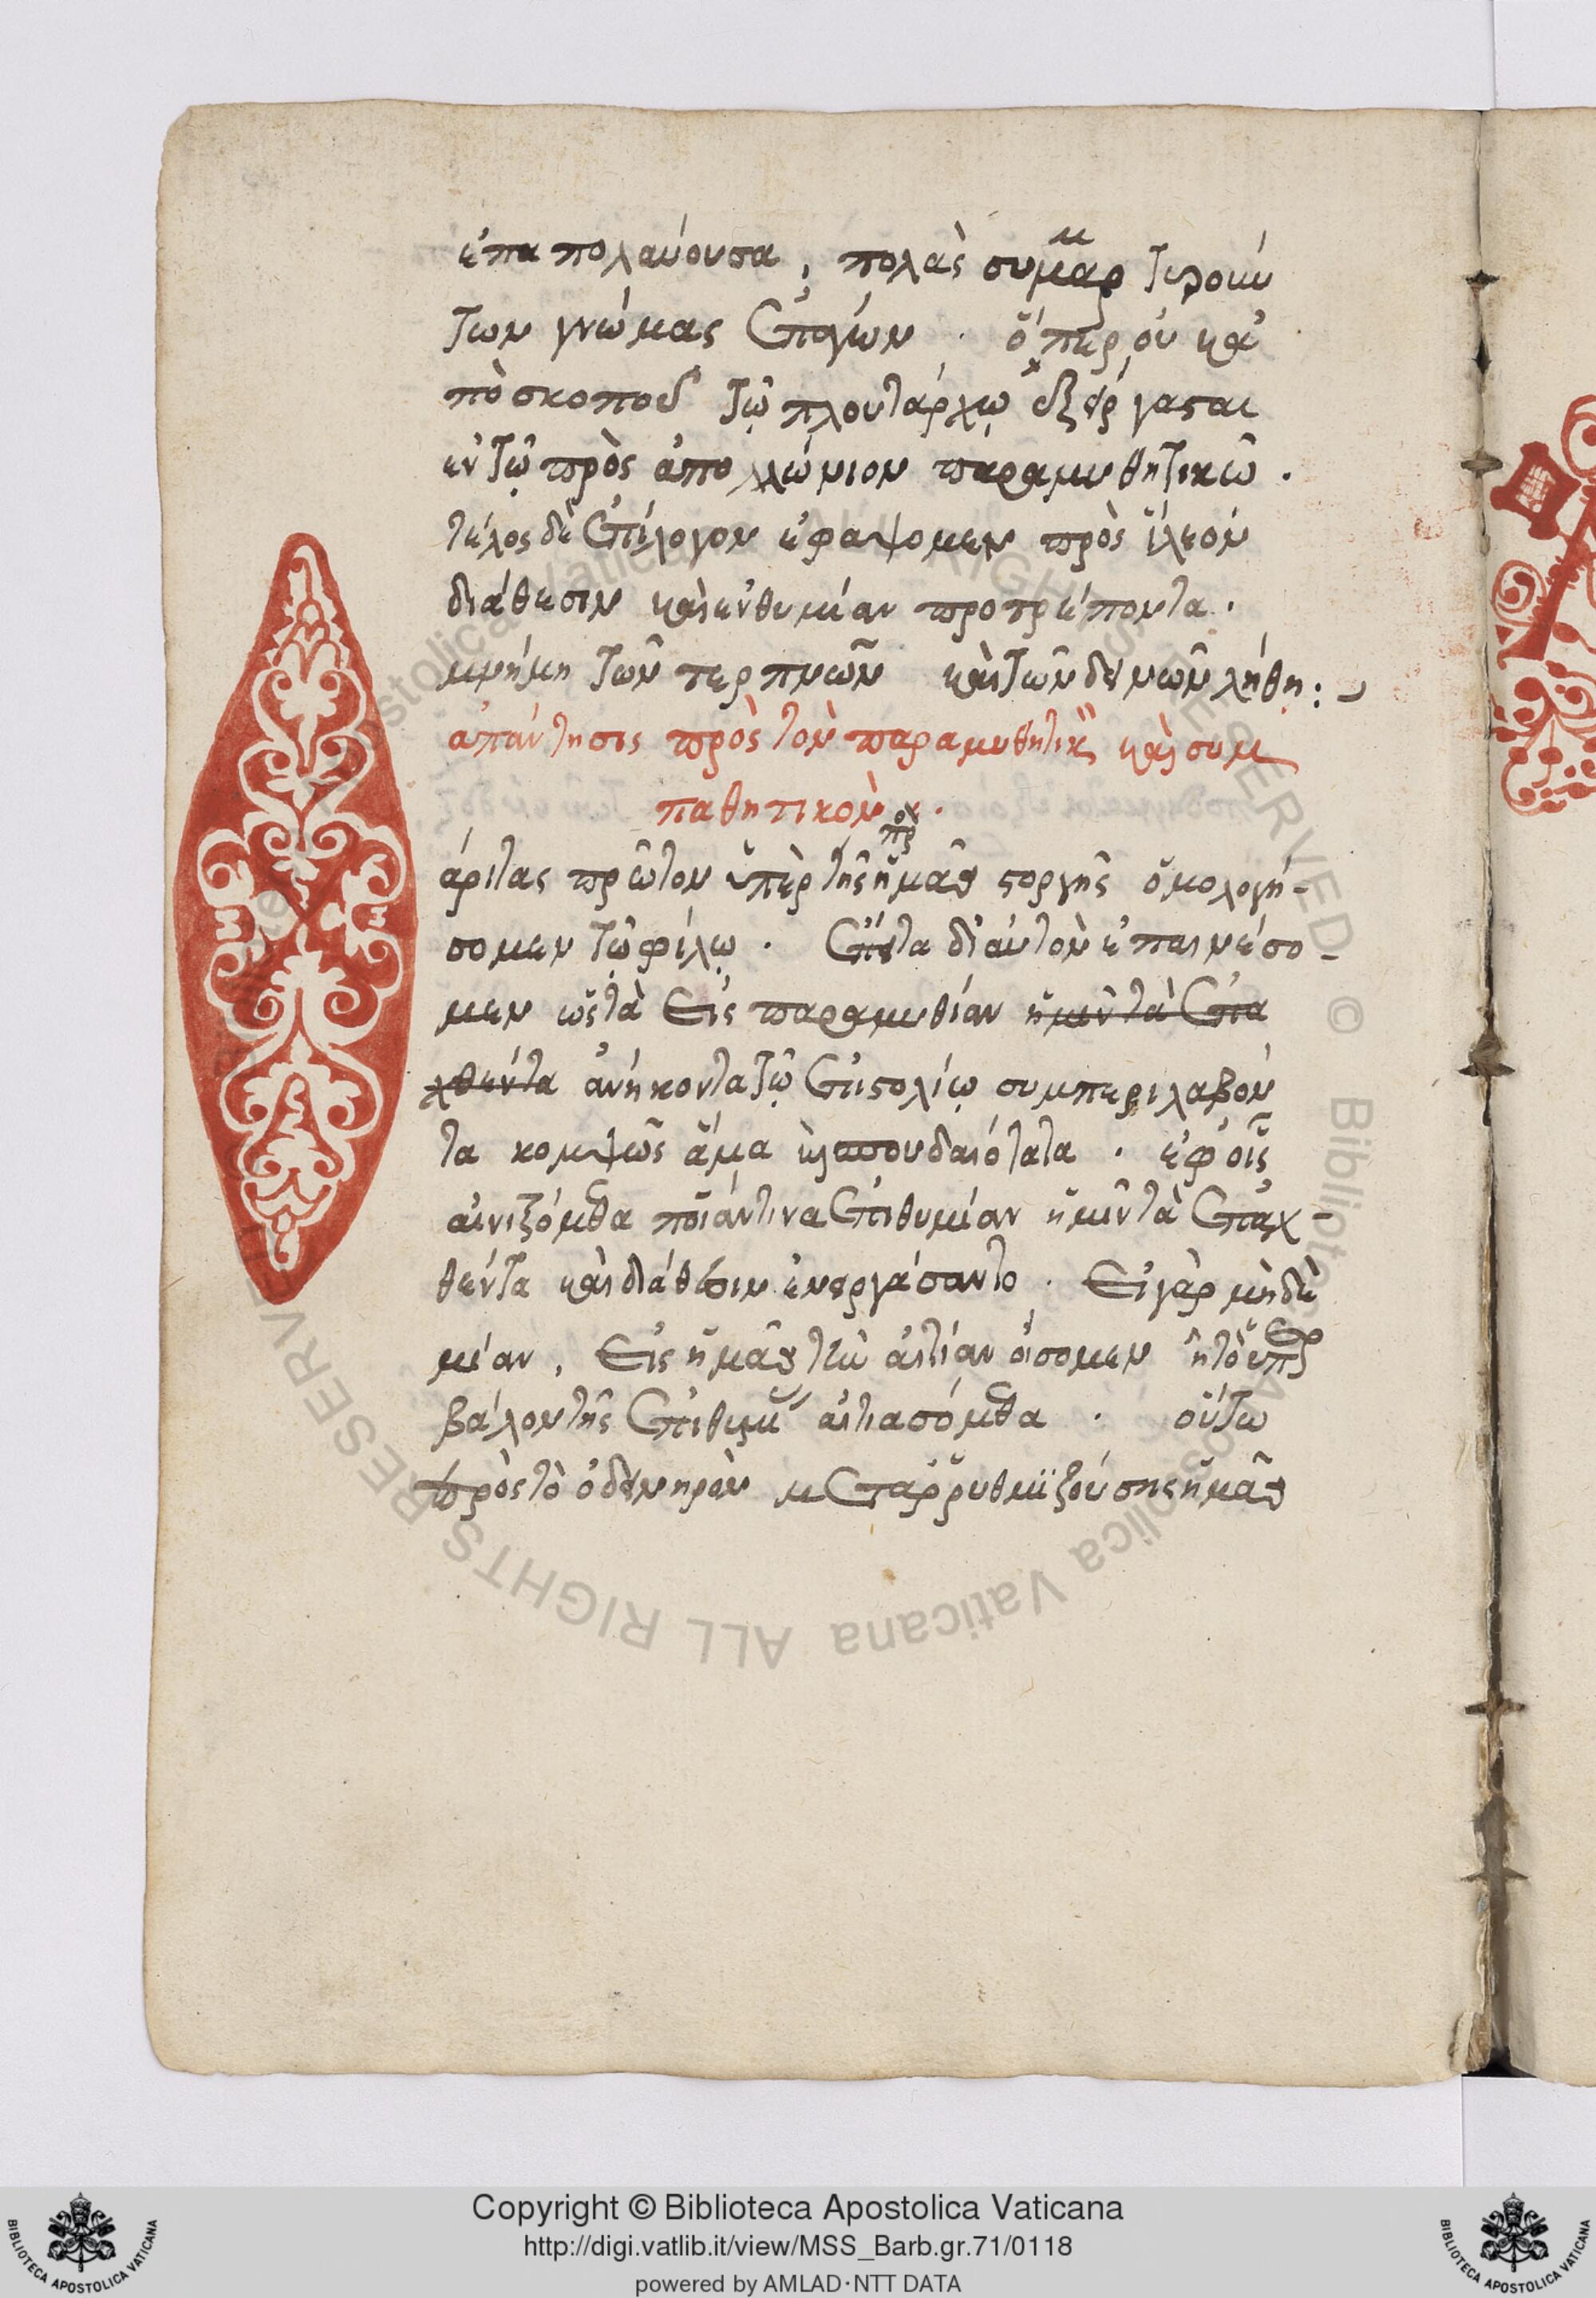 ἐπαπολαύουσα, πολὰς συμμαρτυρούν
των γνώμας ἐπάγων · ὅπερ οὐκ ἀ
πὸ σκοποῦ τῷ πλουτάρχῳ ἐξείργασται
ἐν τῷ πρὸς ἀπολλώνιον παραμυθητικῶ ·
τέλος δὲ ἐπίλογον ἐφάψομεν πρὸς ἵλεον
διάθεσιν καὶ ἐνθυμίαν προτρέποντα ·
μνήμη τῶν τερπνῶν καὶ τῶν δεινῶν λήθη :
ἀπάντησις πρὸς τὸν παραμυθητικ καὶ συμ
παθητικὸν ·
άριτας πρῶτον ὑπὲρ τῆς πρ ἡμᾶς στοργῆς ὁμολογή-
σομεν τῷ φίλῳ · ἔπειτα δι αὐτὸν ἐπαινέσο-
μεν ὡς τὰ εἰς παραμυθίαν ἡμῖν τὰ ἐπα
χθέντα ἀνήκοντα τῷ ἐπιστολίῳ συμπεριλαβόν
τα κομψῶς ἅμα καὶ σπουδαιότατα · ἐφ οἷς
αἰνιξόμεθα ποῖάν τινα ἐπιθυμίαν ἡμῖν τὰ ἐπαχ-
θέντα καὶ διάθεσιν ἐνειργάσαντο · εἰ γὰρ μὴ δὲ
μίαν, εἰς ἡμᾶς τὴν αἰτίαν οἴσομεν ἢ τὸ ὑπερ
βάλον τῆς ἐπιθυμ αἰτιασόμεθα · οὕτω
πρὸς τὸ ὀδυνηρὸν μεταρρυθμϊζούσης ἡμᾶς
Copyright © Biblioteca Apostolica Vaticana
http://digi.vatlib.it/view/MSS_Barb.gr.71/0118
powered by AMLAD·NTT DATA